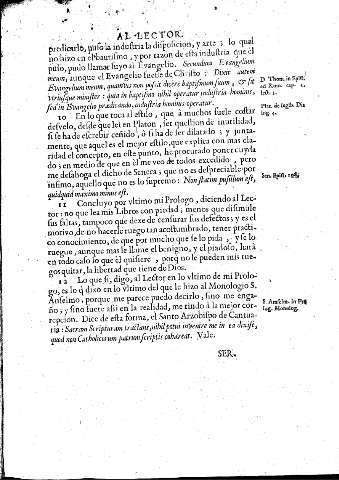 AL LECTOR.
predicarlo, puso la industria la disposicion, y arte; lo qual
no hizo en el bautismo, y por razon de esta industria que èl
puso, pudo llamar suyo al Evangelio. Secundum Evangelium
meum, aunque el Evangelio fuesse de Christo: Dixit autem
Evangelium meum, quamvis non possit dicere baptismum suum, &
utriusque minister: quia in baptismo nihil operatur industria hominis,
sed in Evangelio prædicando, industria hominis operatur.
10 En lo que toca al estilo, que à muchos suele costar
desvelo, desde que lei en Platon, ser question de inutilidad,
si se ha de escribir ceñido, ò si ha de ser dilatado; y junta-
mente, que aquel es el mejor estilo, que explica con mas cla-
ridad el concepto, en este punto, he procurado poner cuyda
do; y en medio de que en èl me veo de todos excedido, pero
me desahoga el dicho de Seneca; que no es despreciable por
infimo, aquello que no es lo supremo: Non statim pusillum est,
quidquid maximo minus est.
11 Concluyo por ultimo mi Prologo, diciendo al Lec-
tor: no que lea mis Libros con piedad; menos que disimule
sus faltas, tampoco que dexe de censurar sus defectos; y es el
motivo, de no hacerle ruego tan acostumbrado, tener practi-
co conocimiento, de que por mucho que se lo pida, y se lo
ruegue, aunque mas le llame el benigno, y el piadoso, harà
en todo caso lo que èl quisiere, porq no le pueden mis rue-
gos quitar, la libertad que tiene de Dios.
12 Lo que si, digo, al Lector en lo vltimo de mi Prolo-
go, es lo q dixo en lo vltimo del que le hizo al Monologio S.
Anselmo, porque me parece puedo decirlo, sino me enga-
ño; y sino fuere assi en la realidad, me rindo à la mejor cor-
reccion. Dice de esta forma, el Santo Arzobispo de Cantua-
ria: Sacram Scripturam tractans, nihil potui invenire me in ea dixisse,
quod non Catholicorum patrum scriptis cohæreat. Vale.
SER.
D. Thom. in Epist.
ad Rom. cap. 2.
lect. 3.
Plat. de legib. Dia
log. 4.
Sen. Epist.
S. Anselm. in Pro
log. Monolog.